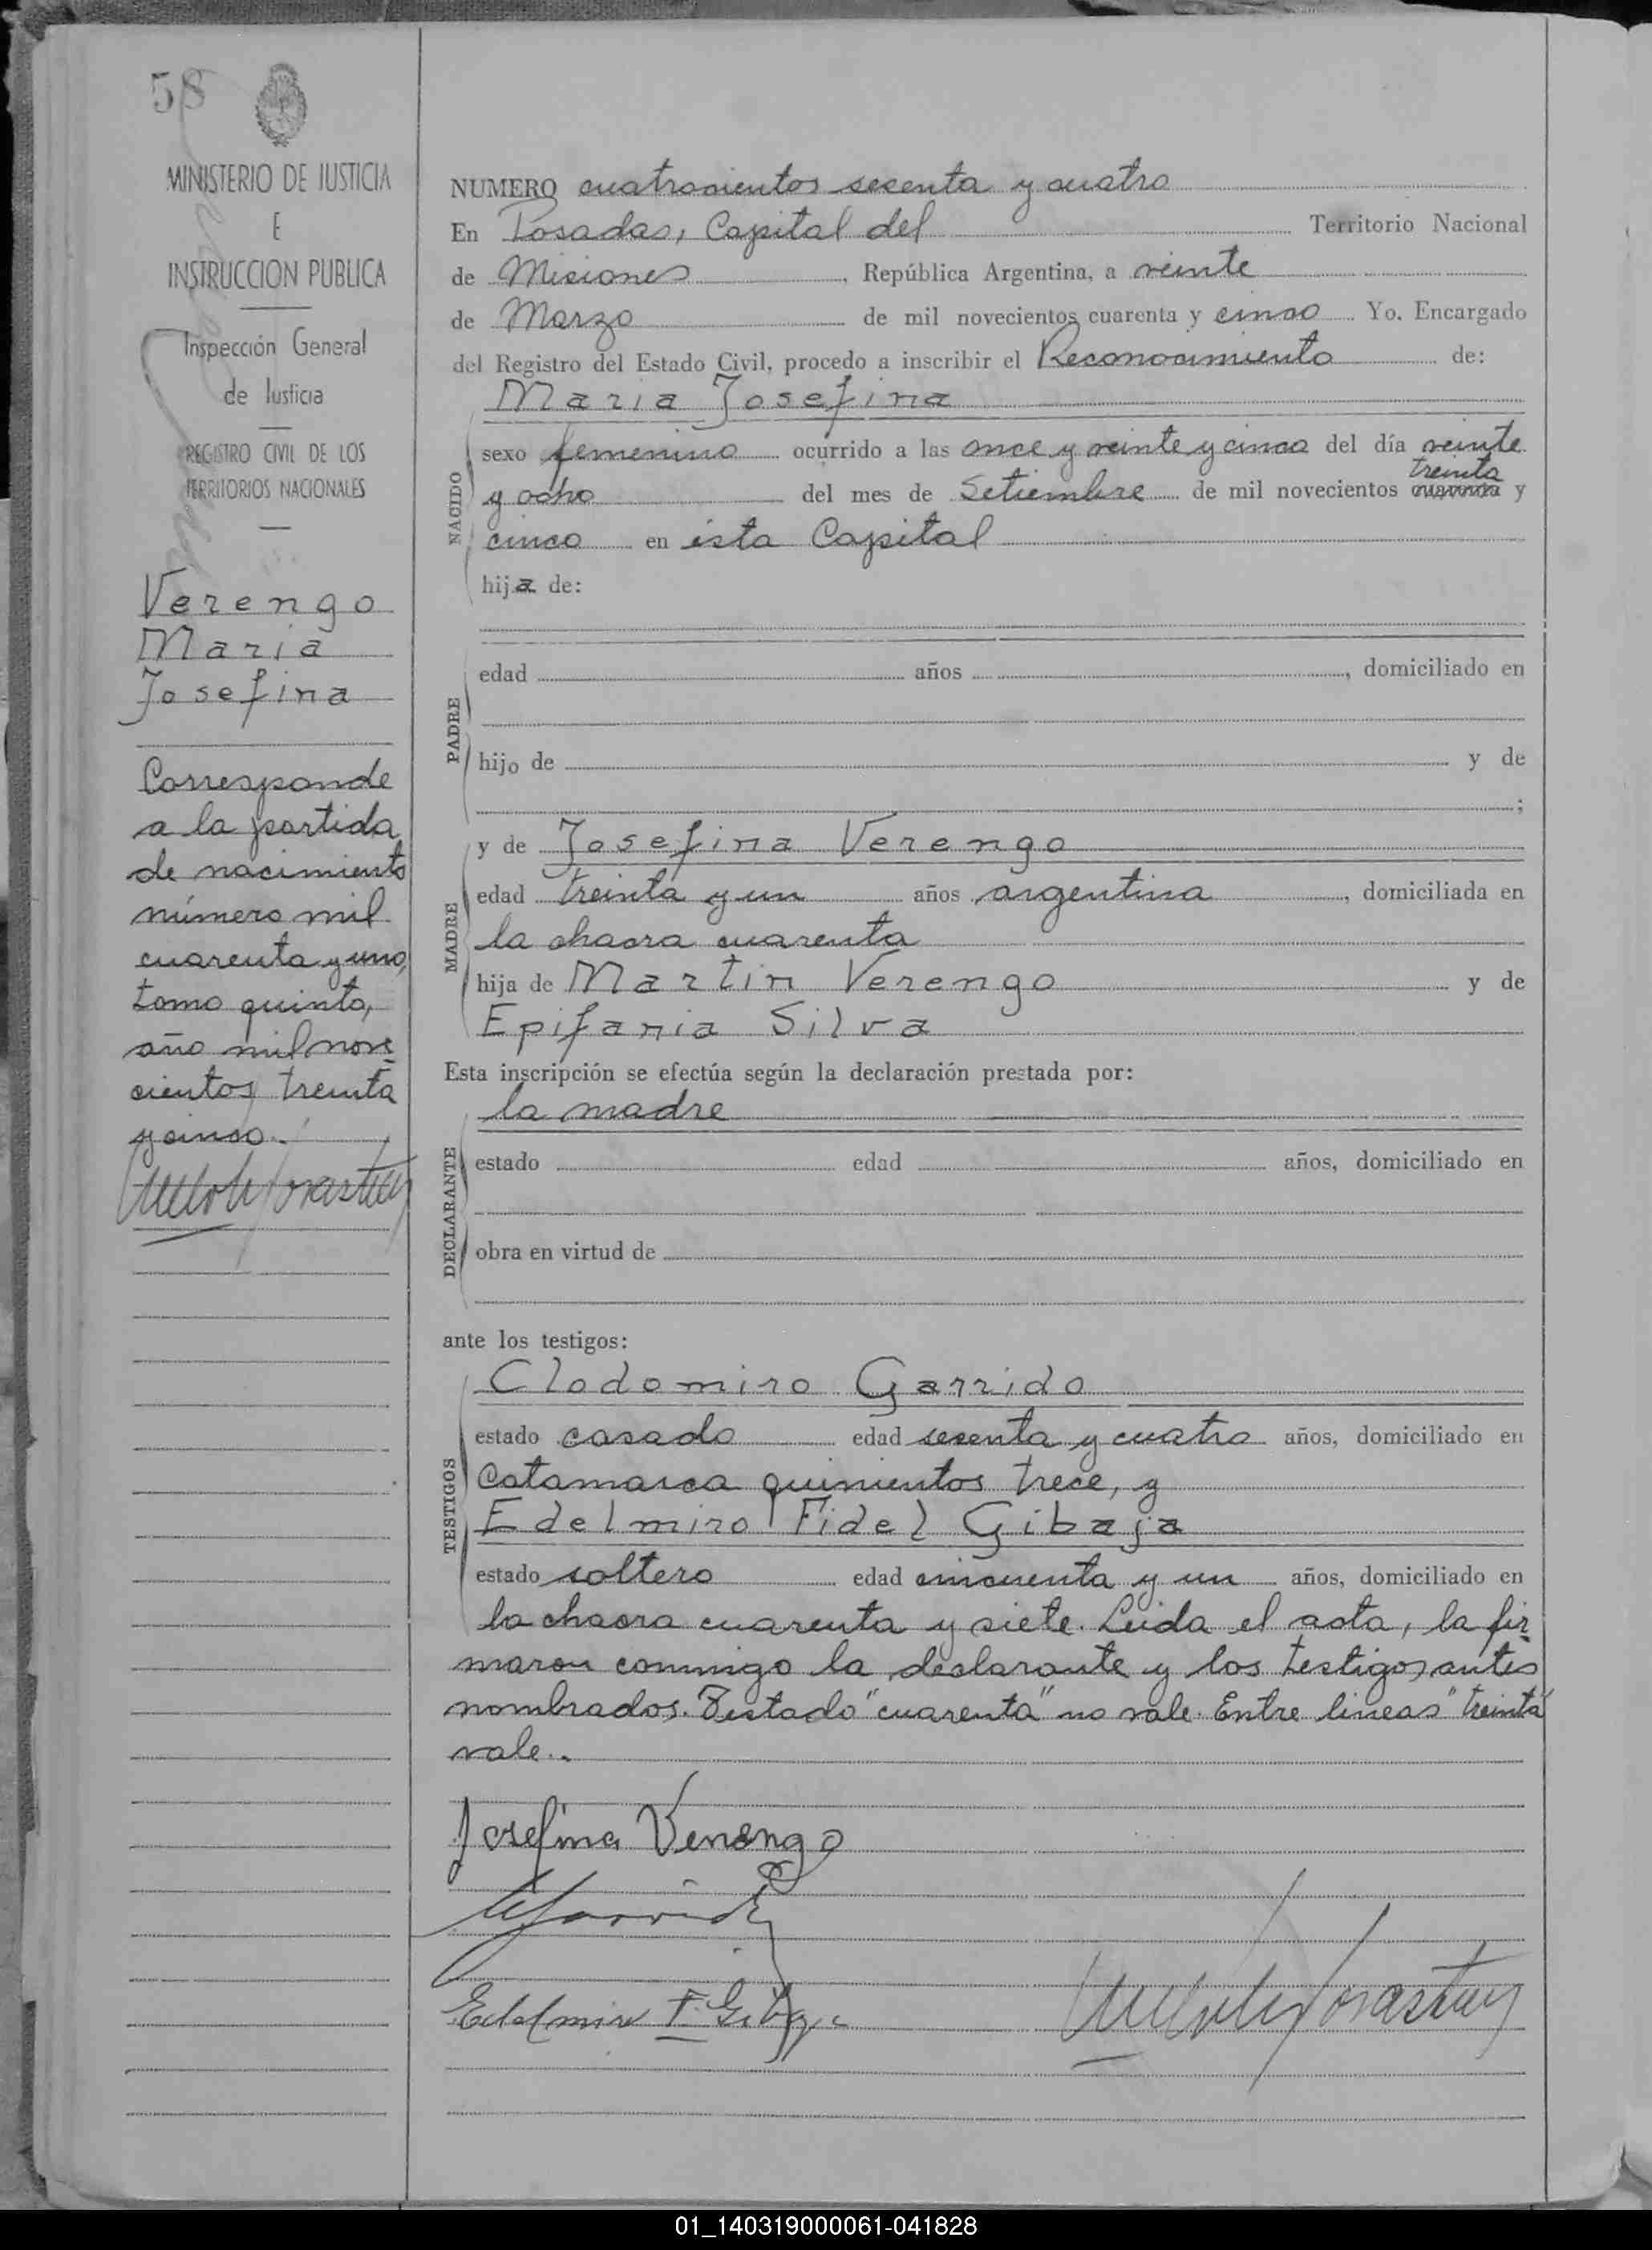 58
MINISTERIO DE JUSTICIA
E
INSTRUCCION PUBLICA
Inspección General
de Justicia
REGISTRO CIVIL DE LOS
TERRITORIOS NACIONALES
Verengo
Maria
Josefina
Corresponde
a la partida
de nacimiento
número mil
cuarenta y uno,
tomo quinto,
año mil nove
cientos treinta
y cinco.
NUMERO cuatrocientos sesenta y cuatro
En Posadas, Capital del Territorio Nacional
de Misiones, República Argentina, a veinte
de Marzo de mil novecientos cuarenta y cinco Yo. Encargado
del Registro del Estado Civil, procedo a inscribir el Reconocimiento de:
Maria Josefina
NACIDO
sexo femenino ocurrido a las once y veinte y cinco del día veinte
treinta
y ocho del mes de Setiembre de mil novecientos cuarenta y
cinco en ésta Capital
hija de:
PADRE
edad años , domiciliado en
hijo de y de
;
MADRE
y de Josefina Verengo
edad treinta y un años argentina, domiciliada en
la chacra cuarenta
hija de Martin Verengo y de
Epifania Silva
Esta inscripción se efectúa según la declaración prestada por:
la madre
DECLARANTE
estado edad años, domiciliado en
obra en virtud de
ante los testigos:
TESTIGOS
Clodomiro Garrido
estado casado edad sesenta y cuatro años, domiciliado en
Catamarca quinientos trece, y
Edelmiro Fidel Gibaja
estado soltero edad cincuenta y un años, domiciliado en
la chacra cuarenta y siete. Leida el acta, la fir
maron conmigo la declarante y los testigos antes
nombrados. Testado "cuarenta" no vale. Entre lineas "treinta"
vale..
Josefina Verengo
Edelmiro F. Gibaja
01_140319000061-041828